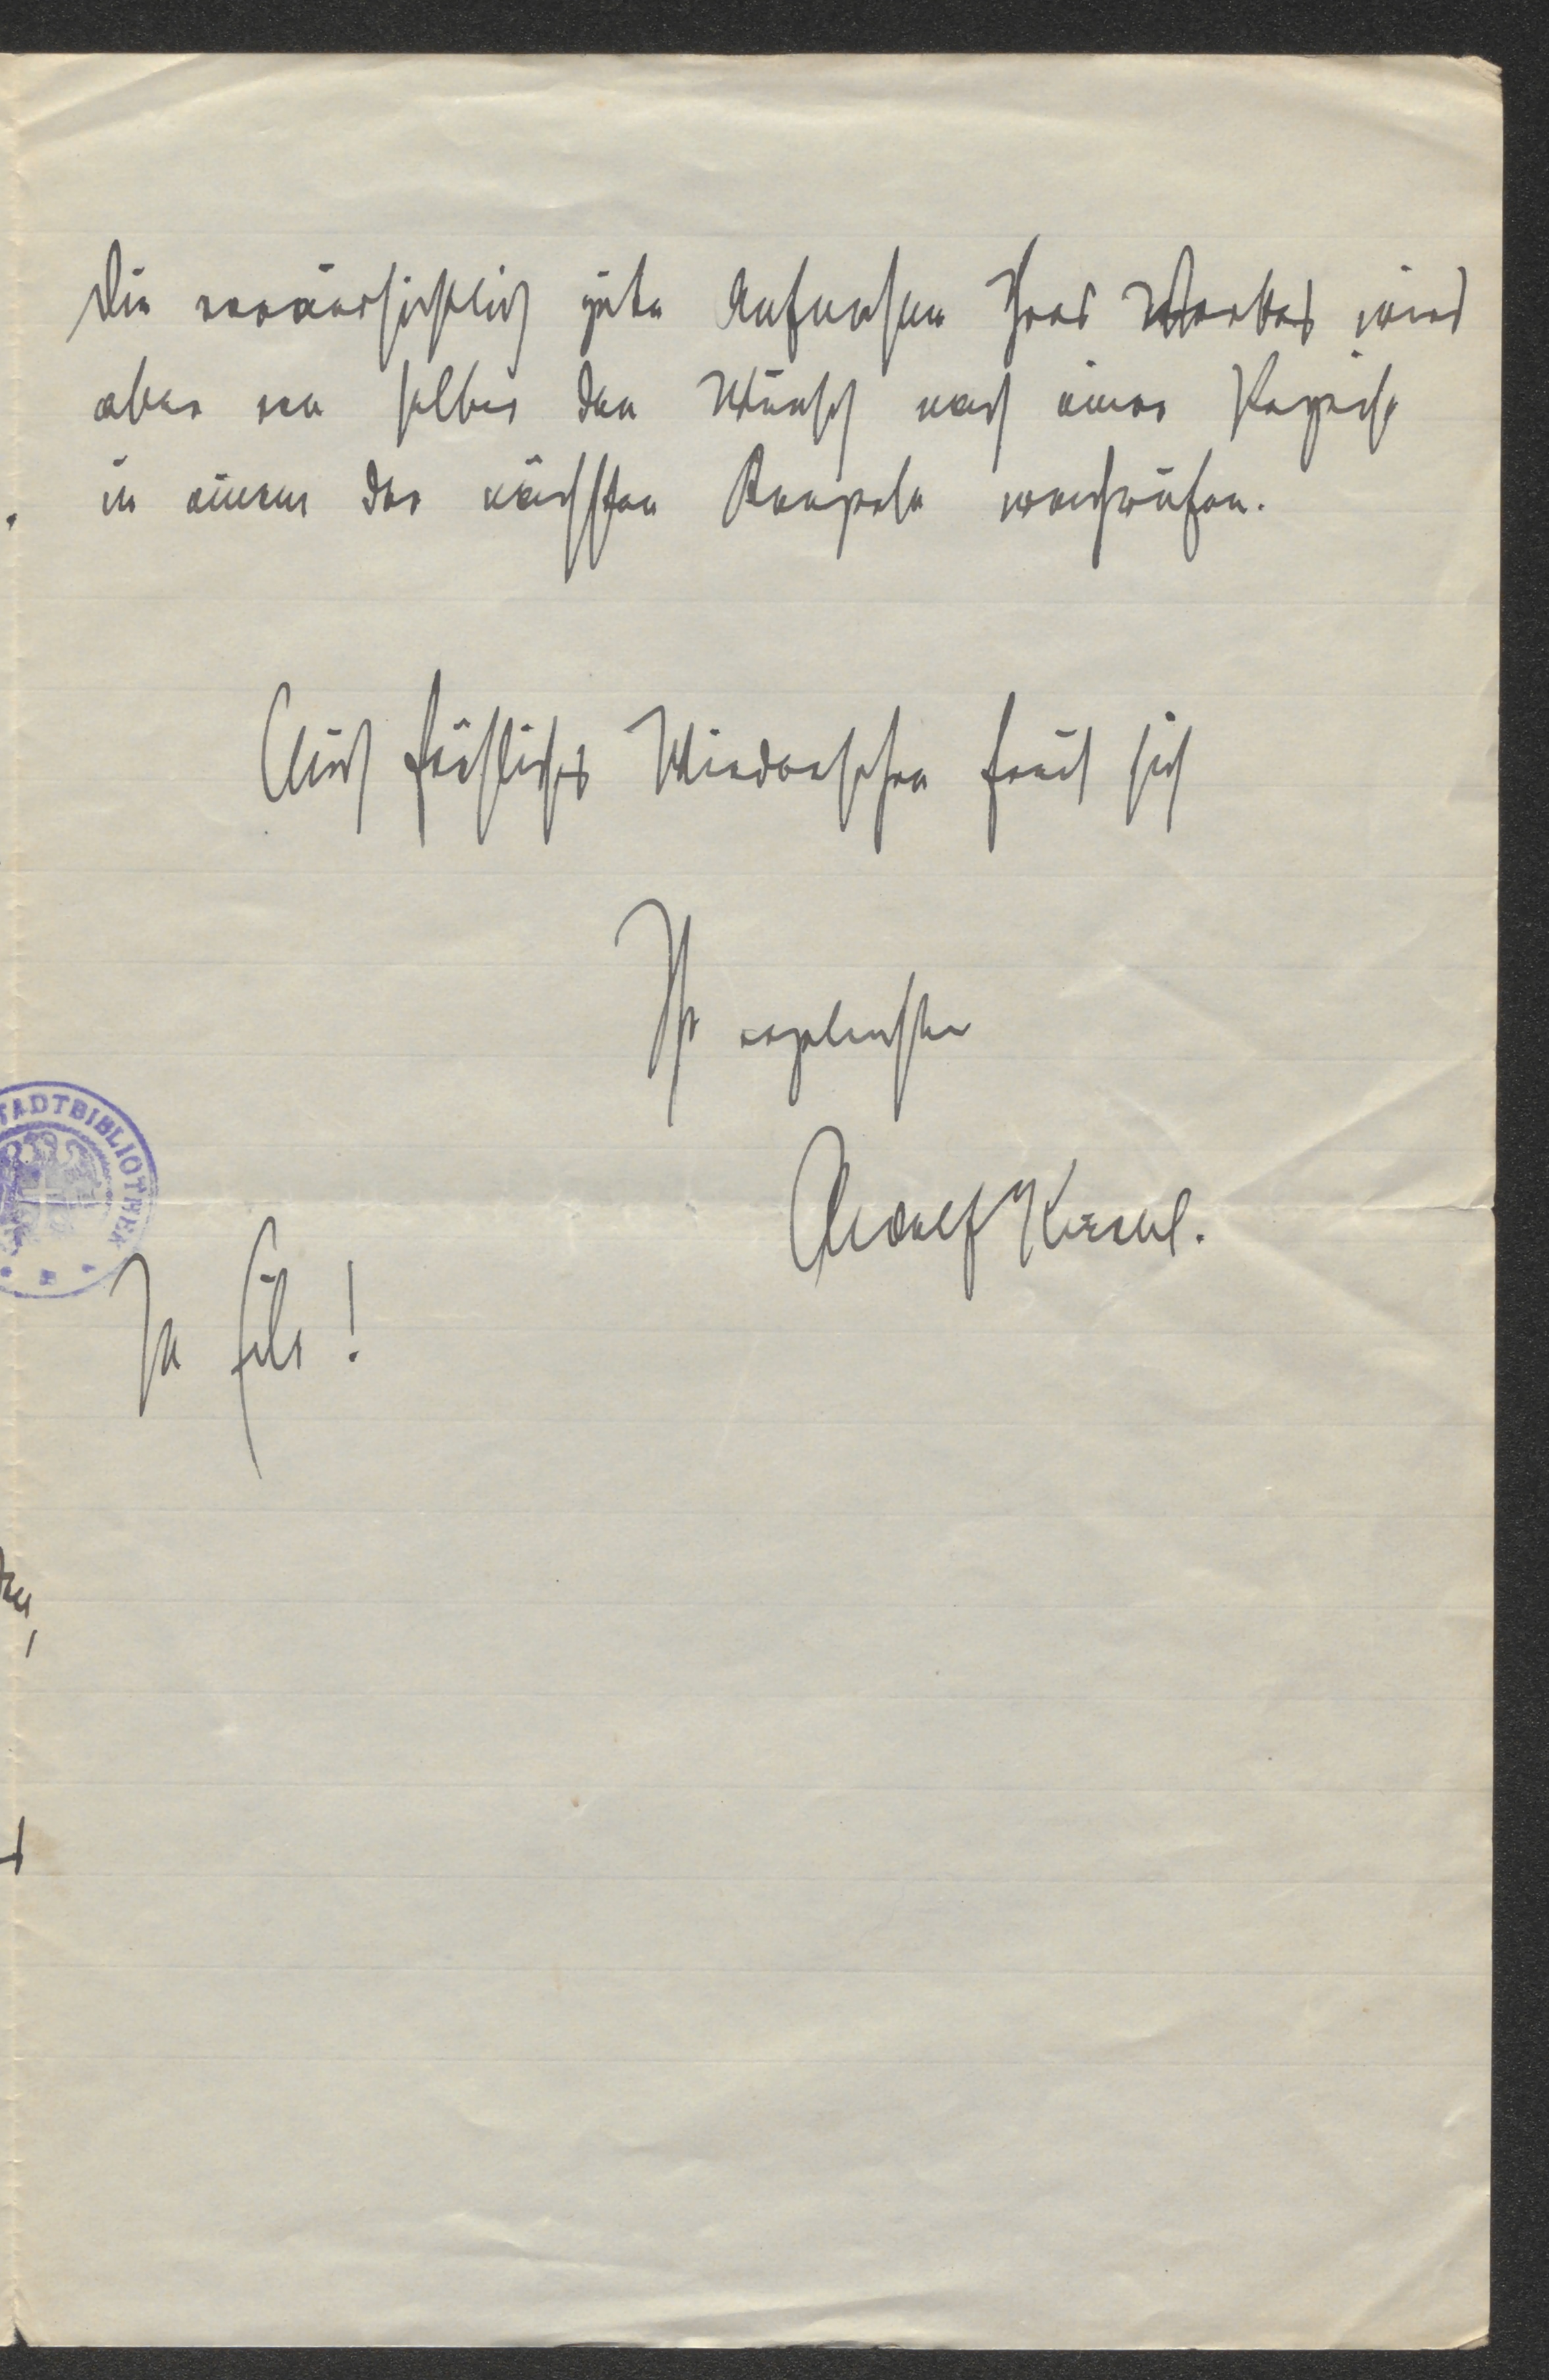 Die voraussichtlich gute Aufnahme Ihres Werkes wird
aber von selber den Wunsch nach einer Reprise
in einem der nächsten Konzerte wachrufen.
Auf fröhliches Wiedersehen freut sich
Ihr ergebenster
Rudolf
STADTBIBLIOTHEK
In Eile!